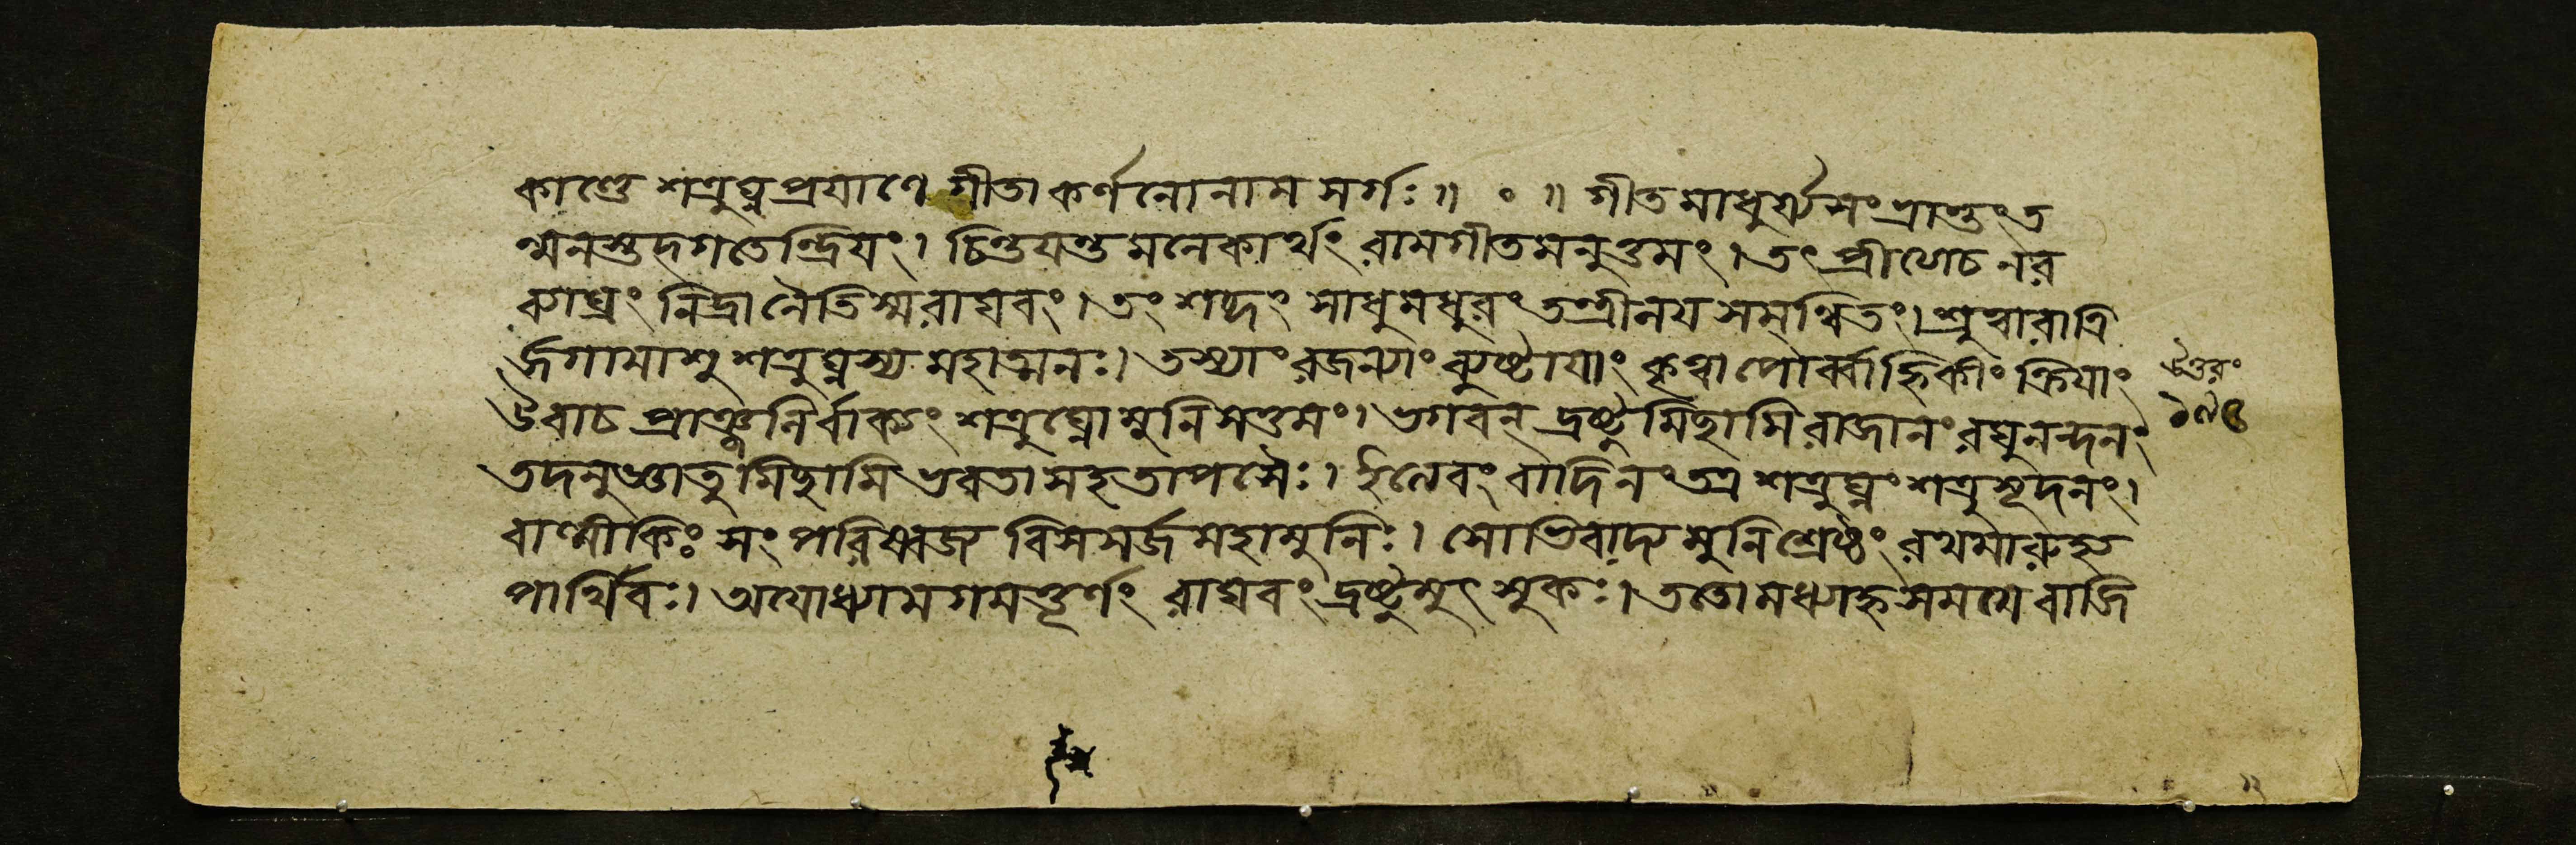 কাণ্ডে শত্রুঘ্নপ্রযাণে গীতাকর্ণনোনাম সর্গঃ॥ ० ॥ গীতমাধুর্য্যসংপ্রাপ্তং ত
ন্মনস্তদ্গতেন্দ্রিযং। চিন্তযন্তমনেকার্থং রামগীতমনুত্তমং। তং
ব্যাঘ্রং নিদ্রা নৈতিস্মরাঘবং। তং শব্দং সাধুমধুরং তন্ত্রীলযসমন্বিতং। শ্রুত্বারাত্রি
র্জগামাশু শত্রুঘ্নস্য মহাত্মনঃ। তস্যাং রজন্যাং ব্যুষ্টাযাং কৃত্বা পৌর্ব্বাহ্নিকীং ক্রিযাং
উবাচ প্রাঞ্জলির্বাক্যং শত্রুঘ্নো মুনিসত্তমং। ভগবন্ দ্রষ্টুমিছামি রাজানং রঘুনন্দনং
তদনুজ্ঞাতুমিছামি ভবতা সহতাপসৈঃ। ইত্যেবং বাদিনং তত্র শত্রুঘ্নং শত্রুসূদনং।
বাল্মীকিঃ সংপরিষ্বজ্য বিসসর্জ মহামুনিঃ। সোভিবাদ্য মুনিশ্রেষ্ঠং রথমারুহ্য
পার্থিবঃ। অযোধ্যামগমত্তূর্ণং রাঘবং দ্রষ্টুমুৎসুকঃ। ততোমধ্যাহ্নসমযে বাজি
উত্তরং